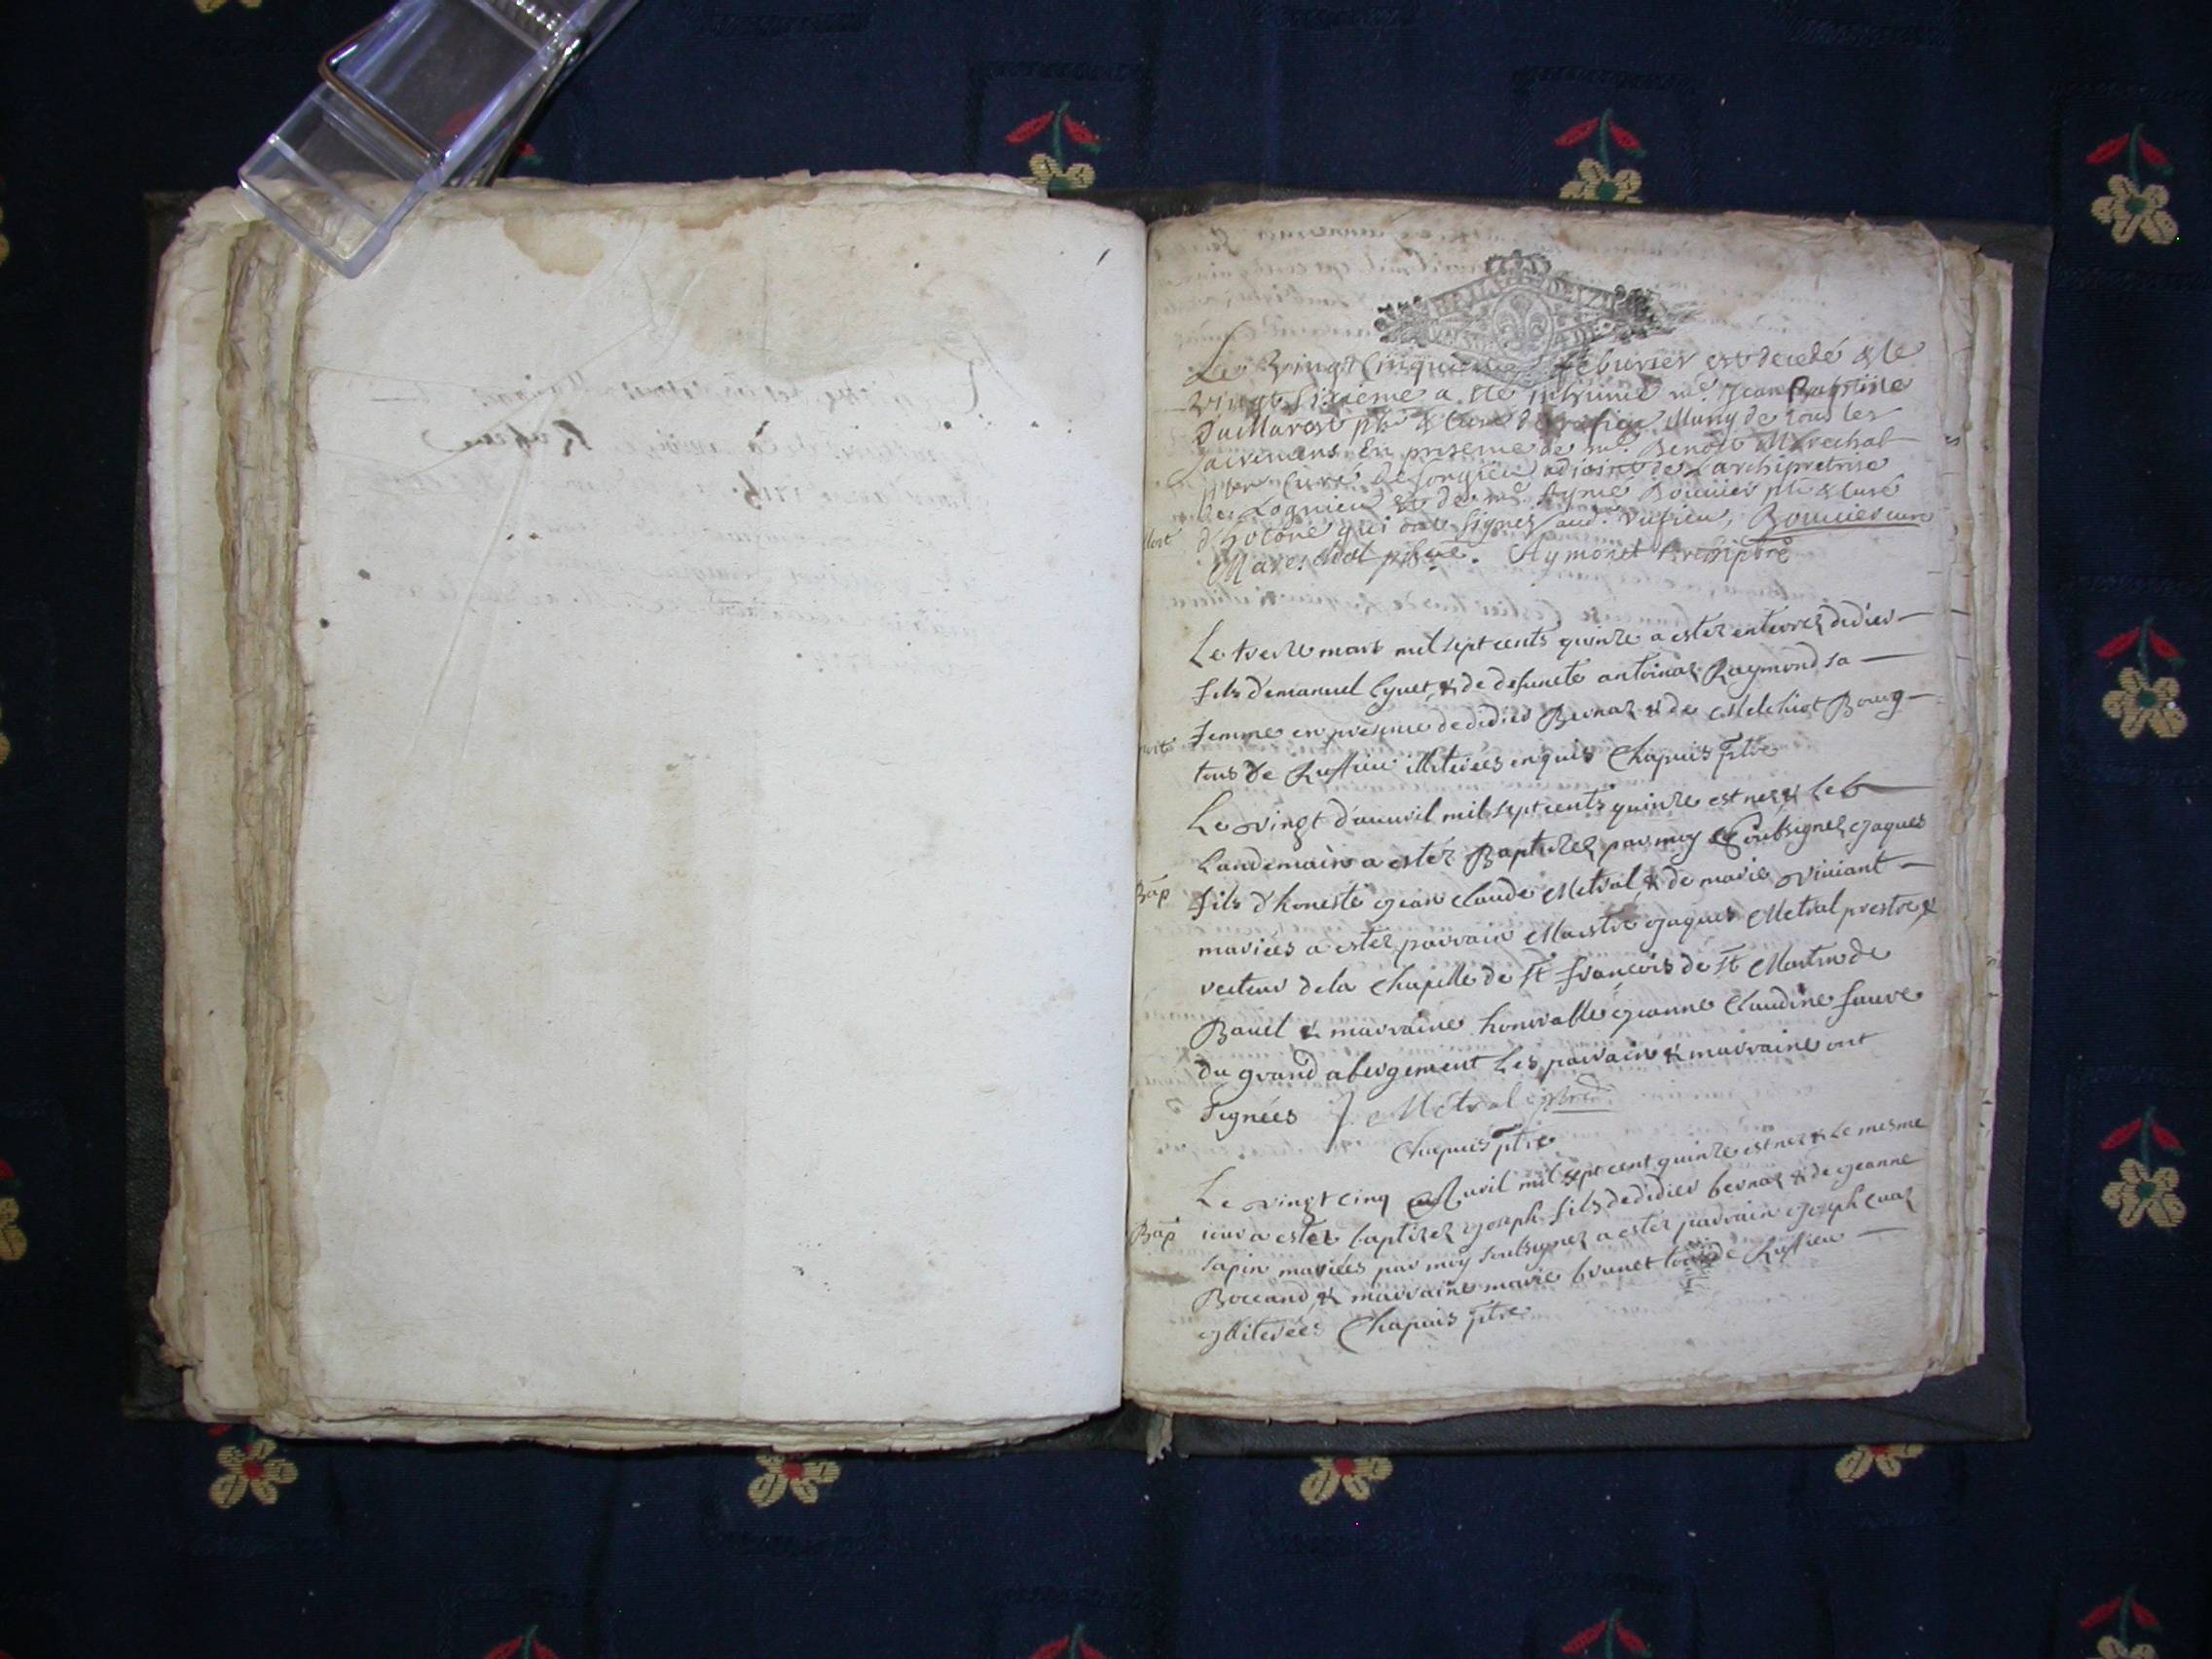 Le vingt cinquieme febvrier est decedé & le
vingt sixieme a été inhumé mre Jean Baptiste
DuMarest ptre & curé de Rufieu Muny de tous les
Sacremens En presence de mre Benoît Marechal
ptre curé de Songieu adjoint de Larchipretrise
& de mre Aymé Bouvier ptre & curé
Mort
d'hotone qui ont signés aud. Rufieu, Bouvier curé
Mareschal Aymonet Archiptre
Le treize mars mil sept cents quinze a ester enterrez didier
fils d'emanuel Cyvet & de defuncte antoinaz Raymond sa
mort
femme en presence de didier Bernaz & de Melchiot Bourg
tous de Ruffieu illiterées enquis Chapuis ptre
Le vingt d'auvril mil sept cents quinze est nez & le
Landemain a estéz Baptizez par moy Soubsignez Jaques
Bap
fils d'honeste Jean Claude Metral & de marie Viviant
mariées a ester parrain Maistre Jaques Metral prestre &
recteur de la Chapelle de St françois de St Martin de
Bavel & marraine honorable Jeanne Claudine favre
du grand abergement Les parrain & marraine ont
Signées J. Metral ptre
Chapuis ptre
Le vingt cinq Auril mil sept cent quinze est nez & Le mesme
Bap
iour a ester baptizez Joseph fils de didier bernaz & de Jeanne
Sapin mariées par moy soubsignez a estér parrain Joseph Cuaz
Boccand & marraine marie brunet tous de Ruffieu
Illiterées Chapuis ptre